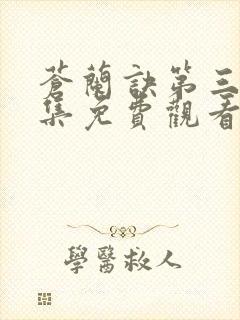 蒼蘭訣第三
集免費觀看
學醫救人